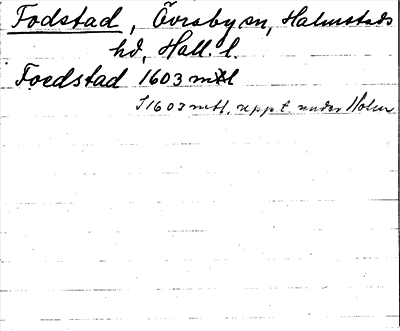 Fodstad, Övraby sn, Halmstads
hd, Hall. l.
Foedstad 1603 mtl
I 1603 mtl. uppt. under Holm